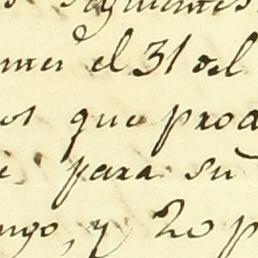 siguientes
el 31 del
que prod
para su
ngo, y 20 p